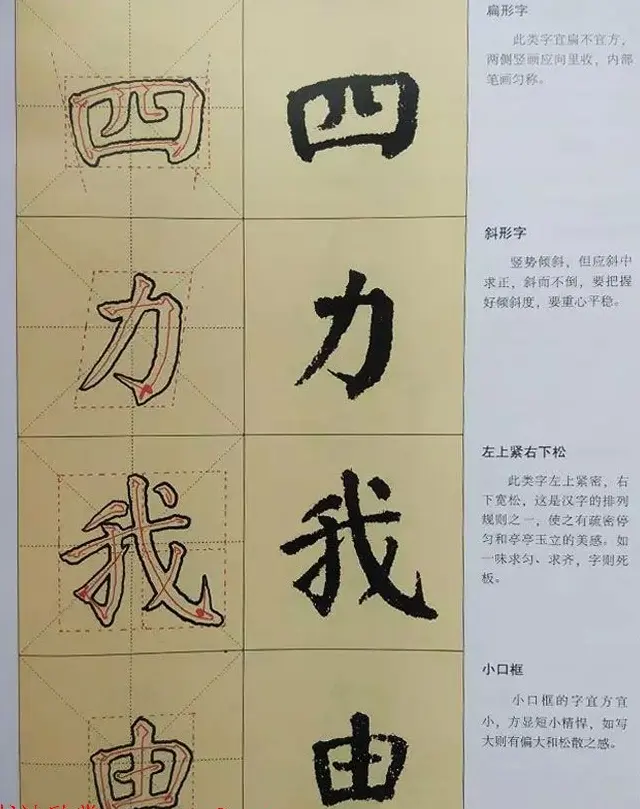 扁形字
此类字宜扁不宜方，
两侧竖画应向里收，内部
笔画匀称。
四 四
斜形字
竖势倾斜，但应斜中
求正，斜而不倒，要把握
好倾斜度，要重心平稳。
力 力
左上紧右下松
此类字左上紧密，右
下宽松，这是汉字的排列
规则之一，使之有疏密停
匀和亭亭玉立的美感。如
一味求匀、求齐，字则死
板。
我 我
小口框
小口框的字宜方宜
小，方显短小精悍，如写
大则有偏大和松散之感。
由 由